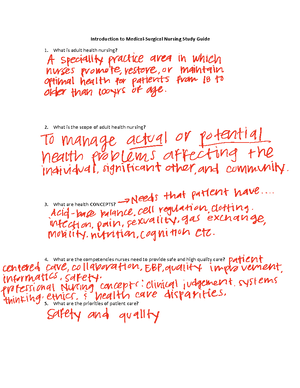 Introduction to Medical-Surgical Nursing Study Guide
1. What is adult health nursing?
A speciality practice area in which
nurses promote, restore, or maintain
optimal health for patients from 18 to
older than 100yrs of age.
2. What is the scope of adult health nursing?
To manage actual or potential
health problems affecting the
individual, significant other, and community.
3. What are health CONCEPTS? → Needs that patient have....
Acid-base balance, cell regulation, clotting
infection, pain, sexuality, gas exchange,
mobility, nutrition, cognition etc.
4. What are the competencies nurses need to provide safe and high quality care? patient
centered care, collaboration, EBP, quality improvement,
informatics, safety.
professional nursing concepts: clinical judgement, systems
thinking, ethics, & health care disparities.
5. What are the priorities of patient care?
Safety and quality